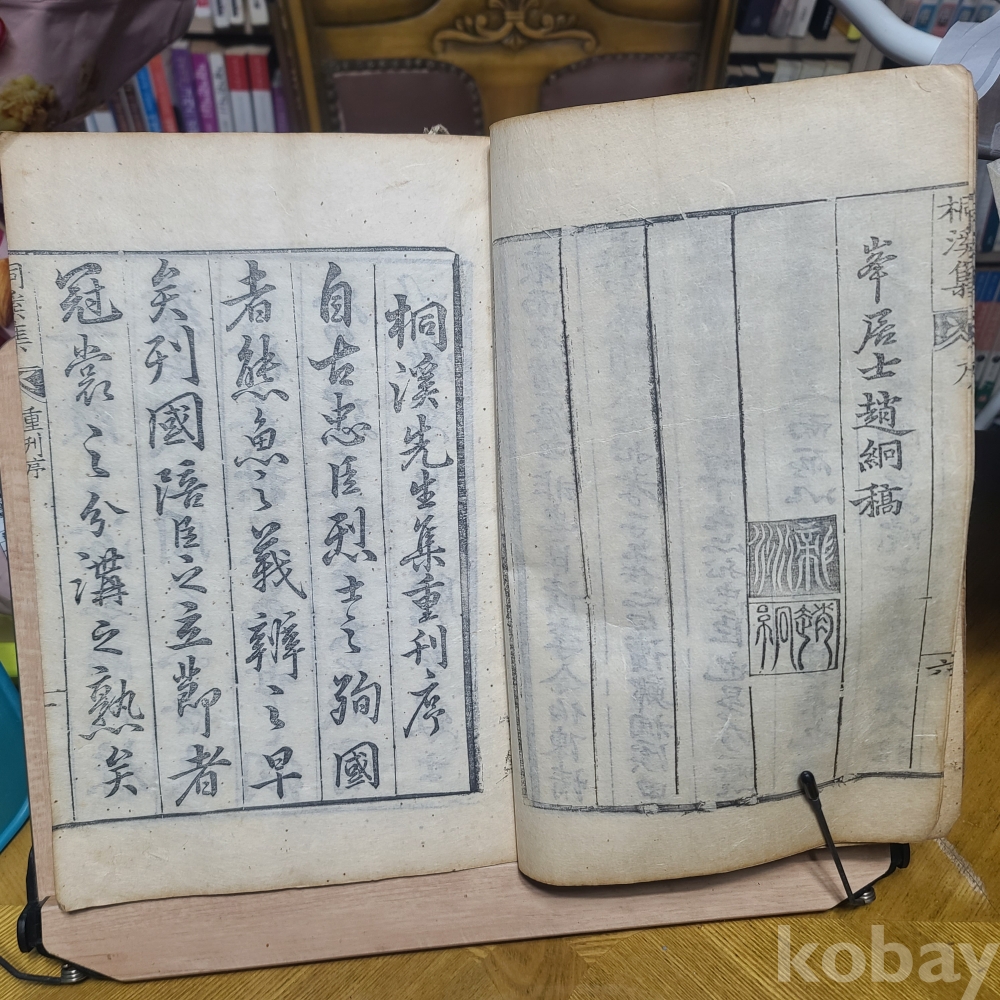 桐溪集
序
六
峯居士趙絅稿
趙絅
桐溪先生集重刊序
自古忠臣烈士之殉國
者熊魚之義辨之早
矣列國陪臣之立節者
冠裳之分講之熟矣
桐溪集
重刊序
一
kobay